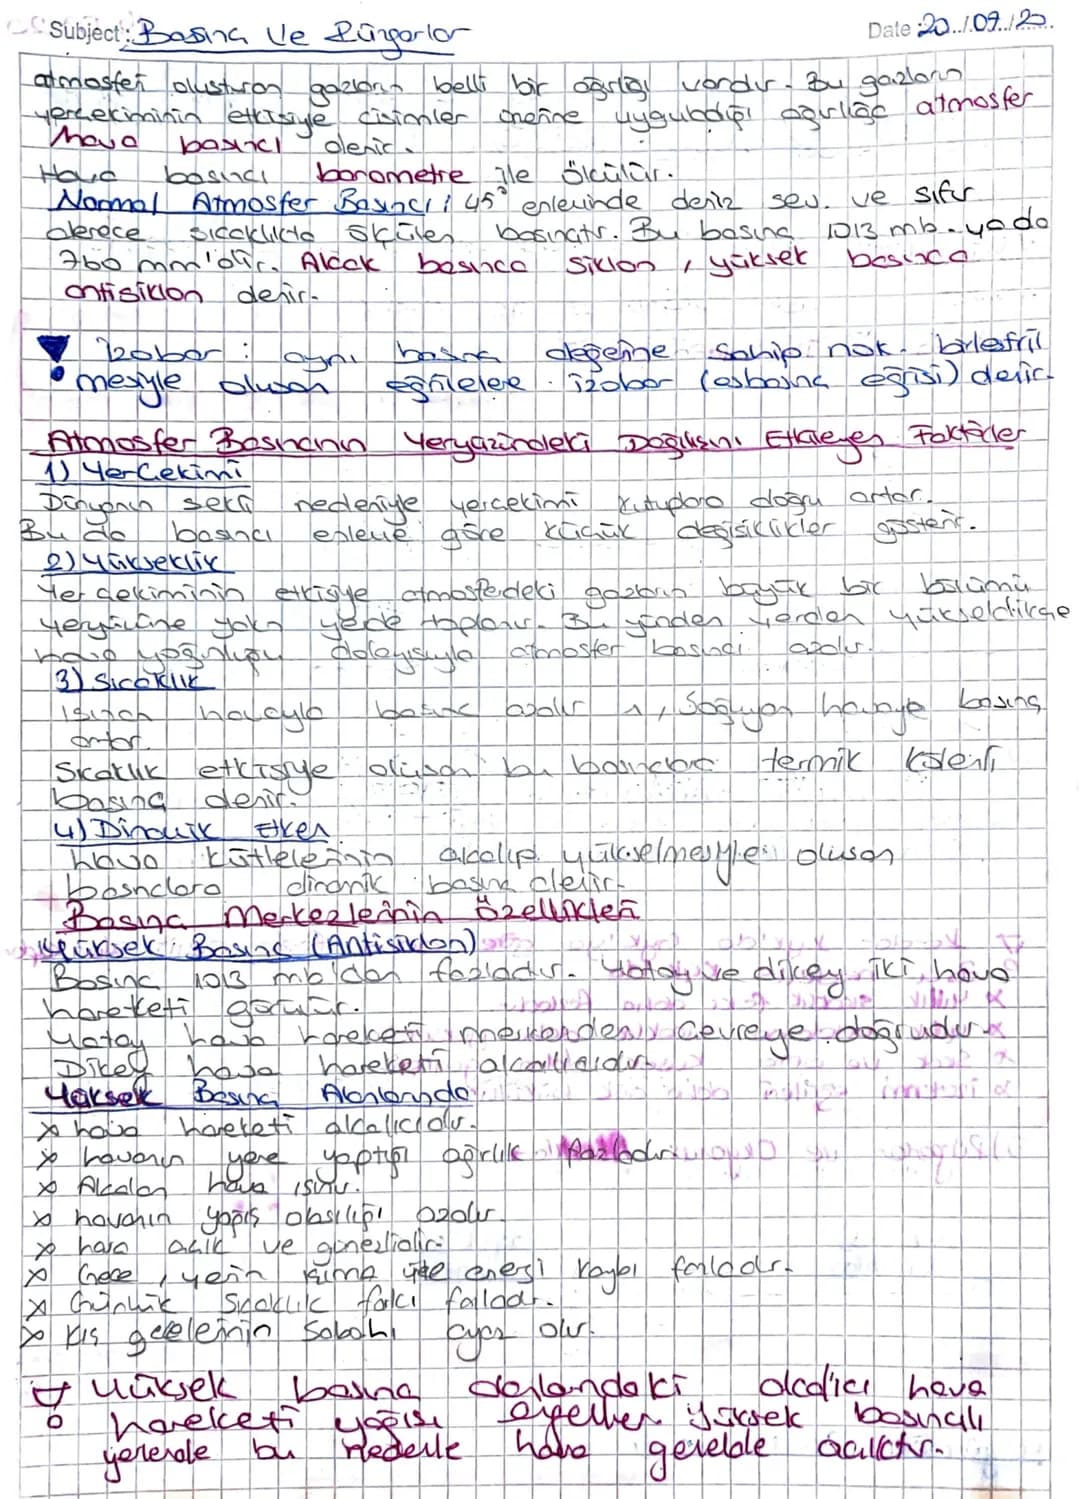 Subject: Basınç Ve Rüzgarlar
Date: 20../.09../20..
atmosferi oluşturan gazların belli bir ağırlığı vardır. Bu gazların
yerçekiminin etkisiyle cisimler üzerine uyguladığı ağırlığa atmosfer
hava basıncı denir.
Hava basıncı barometre ile ölçülür.
Normal Atmosfer Basıncı: 45° enlevinde deniz sev. ve sıfır
derece sıcaklıkta ölçülen basınçtır. Bu basınç 1013 mb. ya da
760 mm'dir. Alçak basınca siklon, yüksek basınca
antisiklon denir.
İzobar: aynı basınç değerine sahip nok. birleştril
mesiyle oluşan eğrilere izobar (eşbasınç eğrisi) denir.
Atmosfer Basıncının Yeryüzündeki Dağılışını Etkileyen Faktörler
1) YerÇekimi
Dünyanın şekli nedeniyle yerçekimi kutuplara doğru artar.
Bu da basıncı enleve göre küçük değişiklikler gösterir.
2) Yükseklik
Yer çekiminin etkisiyle atmosferdeki gazların büyük bir bölümü
yeryüzüne yakın yerde toplanır. Bu yüzden yerden yükseldikçe
hava yoğunluğu dolayısıyla atmosfer basıncı azalır.
3) Sıcaklık
Isınan havayla basınç azalır, Soğuyan havaya basınç
artar.
Sıcaklık etkisiyle oluşan bu basınclara termik kökenli
basınç denir.
4) Dinamik Etken
hava kütlelerinin alcalıp yükselmesiyle oluşan
basınclara dinamik basınç denir.
Basınç Merkezlerinin Özellikleri
Yüksek Basınç (Antisiklon)
Basınç 1013 mb'dan fazladır. Yatay ve dikey iki hava
hareketi görülür.
Yatay hava hareketi merkezden Çevreye doğrudur.
Dikey hava hareketi alcalıcıdır.
Yüksek Basınç Alanlarında
x hava hareketi alcalıcıdır.
x havanın yere yaptığı ağırlık fazladır.
x Alcalan hava ısınır.
x havanın yağış olasılığı azalır.
x hava açık ve güneşlidir.
x Gece, yerin ısıma ile enerji kaybı fazladır.
x Günlük Sıcaklık farkı fazladır.
x kış gecelerinin Sabahı ayaz olur.
Yüksek basınç alanlarındaki alcalıcı hava
hareketi yağışı engeller yüksek basınçlı
yererde bu nedenle hava genelde açıktır.